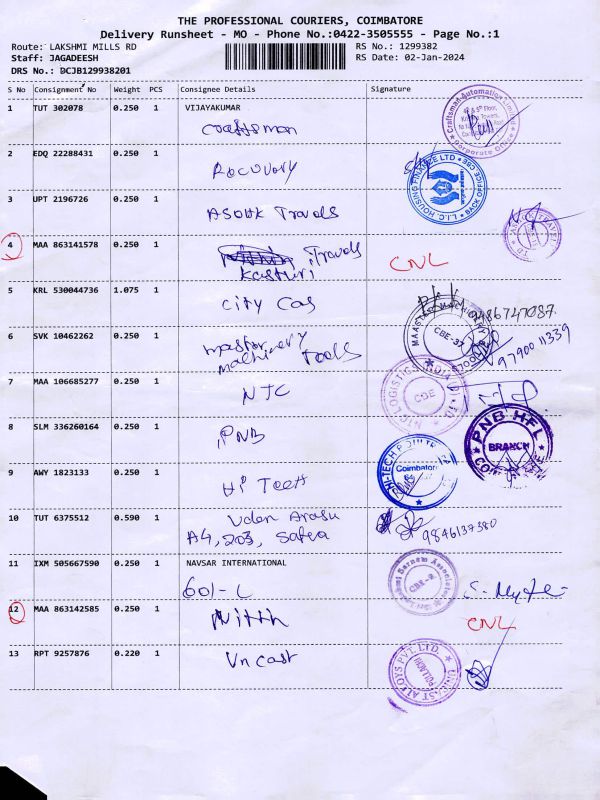 THE PROFESSIONAL COURIERS, COIMBATORE
Delivery Runsheet - MO - Phone No.:0422-3505555 - Page No.:1
Route: LAKSHMI MILLS RD RS No.: 1299382
Staff: JAGADEESH RS Date: 02-Jan-2024
DRS No.: DCJB129938201
S No Consignment No Weight PCS Consignee Details Signature
1 TUT 302078 0.250 1 VIJAYAKUMAR
Craftsman
2 EDQ 22288431 0.250 1
Recovery
3 UPT 2196726 0.250 1
ASOUK Travels
4 MAA 863141578 0.250 1 Travels CNL
Kasturi
5 KRL 530044736 1.075 1
City Gas 9486747087
6 SVK 10462262 0.250 1
Machinery Tools 9790011339
7 MAA 106685277 0.250 1
NTC
8 SLM 336260164 0.250 1
PNB
PNB HFL
BRANCH
9 AWY 1823133 0.250 1
Coimbatore
Hi Tech
10 TUT 6375512 0.590 1 Uden Arasu
A4, 203, 9846137380
11 IXM 505667590 0.250 1 NAVSAR INTERNATIONAL
601-L
12 MAA 863142585 0.250 1
Nitth CNL
13 RPT 9257876 0.220 1
Un cast